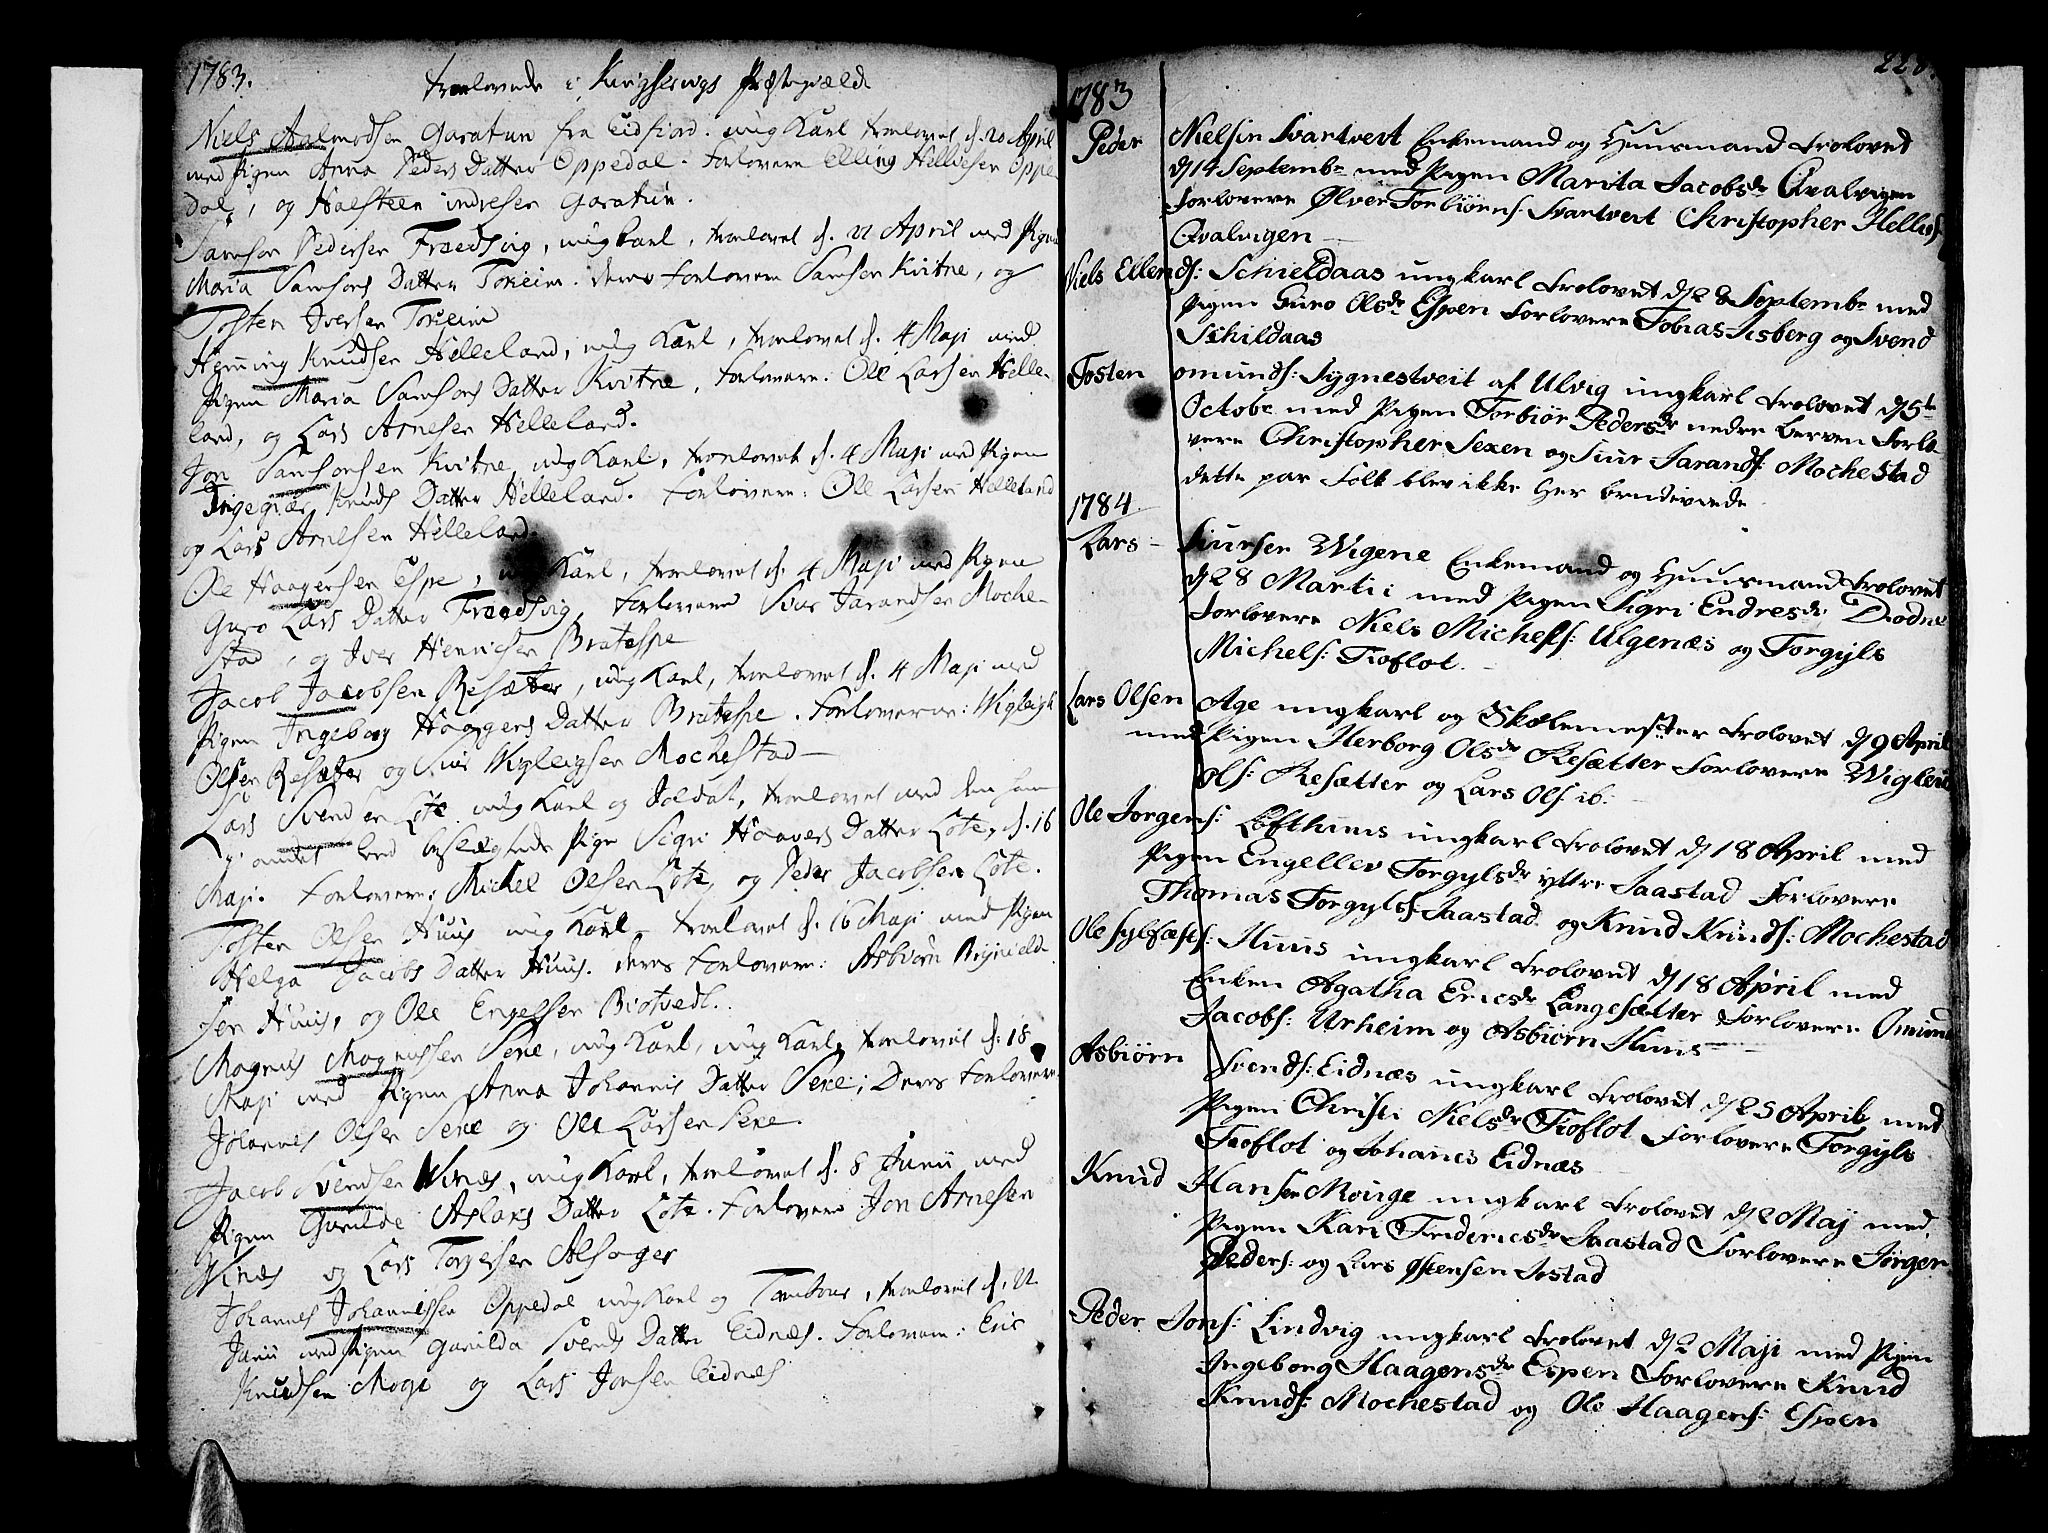 1783. troelovede i Kingservigs Præstegield
Niels Aslmodsen Garatun fra Eidfiord. ung Karl troelovet d. 20 April
med Pigen Anna Peders Datter Oppedal. Forlovere Elling Helliesen Oppe-
dal, og Halsteen indresen Garatun.
Samson Pedersen Fraedsvig, ung karl, troelovet d. 21 April med Pigen
Maria Samsons Datter Tokeim. deres Forlovere Samson Kvitne, og
Tosten Iversen Tokeim
Hemming Knudsen Helleland, ung Karl, troelovet d. 4 Maji med
Pigen Maria Samsons Datter Kvitne, Forlovere: Ole Larsen Helle-
land, og Lars Arnesen Helleland.
Jon Samsonsen Kvitne, ung Karl, troelovet d. 4 Maji med Pigen
Ingegiær Knuds Datter Helleland. Forlovere: Ole Larsen Helleland
og Lars Arnesen Helleland.
Ole Haagensen Espe, ung Karl, troelovet d. 4 Maji med Pigen
Guro Lars Datter Fraedsvig, Forlovere Siur Jarandsen Moche-
stad, og Iver Henricsen Bratespe
Jacob Jacobsen Resæter, ung Karl, troelovet d. 4 Maji med
Pigen Ingeborg Haagens Datter Bratespe. Forlovere: Wigleigh
Olsen Resæter og Siur Wigleigsen Mochestad
Lars Svendsen Lote ung Karl og Soldat, troelovet med den ham
i andet leed besvægrede Pige Sigri Haavers Datter Lote, d. 16
Maji. Forlovere: Michel Olsen Lote, og Peder Jacobsen Lote.
Tosten Olsen Huus ung Karl troelovet d. 16 Maji med Pigen
Helga Jacobs Datter Huus. deres Forlovere: Asbiørn
sen Huus, og Ole Engelsen Biotvedt.
Magnus Magnussen Sexe, ung Karl, ung Karl, troelovet d. 18
Maji med Pigen Anna Johannis Datter Sexe; Deres Forlovere
Johannes Olsen Sexe og Ole Larsen Sexe.
Jacob Svendsen Winæs, ung Karl, troelovet d. 8 Junii med
Pigen Gunilde Aslaks Datter Lote. Forlovere Jon Arnesen
Winæs og Lars Torgersen Alsager
Johannes Johannessen Oppedal ung Karl og Tambour, troelovet d. 22
Junii med Pigen Gunilda Svends Datter Eidnæs. Forlovere: Eric
Knudsen Moge og Lars Jonsen Eidnæs
228.
1783
Peder Nielsen Svartvert Enkemand og Huusmand trolovet
d 14 Septembr med Pigen Marita Jacobsdr Qvalvigen
Forlovere Ølver Torbiørns. Svartvert Christopher Hellies
Qvalvigen
Niels Ellends: Schieldaas ungkarl trolovet d 28 Septembr med
Pigen Guro Olsdr Espen Forlovere Tobias Sisberg og Svend
Schildaas
Tosten omunds: Sygnestveit af Ulvig ungkarl trolovet d 5te
Octobr med Pigen Torbiør Pedersdr nedre Berven Forlo-
vere Christopher Sexen og Siur Jarands: Mochestad
dette par Folk blev ikke her
1784
Lars Siursen Wigene Enkemand og Huusmand trolovet
d 28 Martii med Pigen Sigri Endresdr: Diødne
Forlovere Niels Michels: Ulgenæs og Torgyls
Michels: Tioflot.
Lars Olsen Age ungkarl og Skolemester trolovet d 9 April
med Pigen Herborg Olsdr Resætter Forlovere Wigleig
Ols: Resætter og Lars Ols ib:
Ole Jorgens: Lofthuus ungkarl trolovet d 18 April med
Pigen Engellev Torgylsdr yttre Jaastad Forlovere
Thomas Torgyls: Jaastad og Knud Knuds: Mochestad
Ole Sylfæsts: Huus ungkarl trolovet d 18 April med
Enken Agatha Ericsdr Langesætter Forlovere Omund
Jacobs: Urheim og Asbiørn Huus
Asbiørn Svends: Eidnæs ungkarl trolovet d 25 April med
Pigen Christi Nielsdr Tioflot Forlovere Torgyls
Tioflot og Johanes Eidnæs
Knud Hansen Mouge ungkarl trolovet d 2 Maj med
Pigen Kari Fridericsdr Jaastad Forlovere Jørgen
Peders: og Lars Østensen Jostad
Peder Jons: Lindvig ungkarl trolovet d 2 Maji med Pigen
Ingeborg Haagensdr Espen Forlovere Knud
Knuds: Mochestad og Ole Haagens: Espen